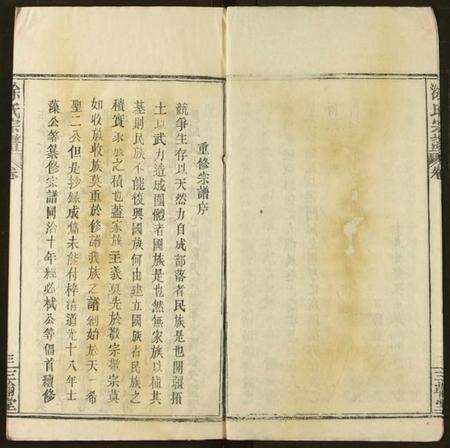 涂氏宗譜
卷
三蘭堂
重修宗譜序
競爭生存以天然力自成部落者民族是也開疆拓
土以武力造成團體者國族是也然無家族以植其
基則民族不能復興國族何由建立國族者民族之
積實家族之積也蓋家族主義莫先於敬宗敬宗莫
如收族收族莫重於修譜我族之譜創始於天一希
聖二公但是抄錄成篇未能付梓清道光十八年士
藻公等纂修宗譜同治十年經必栻公等倡首續修
涂氏宗譜
卷
三蘭堂